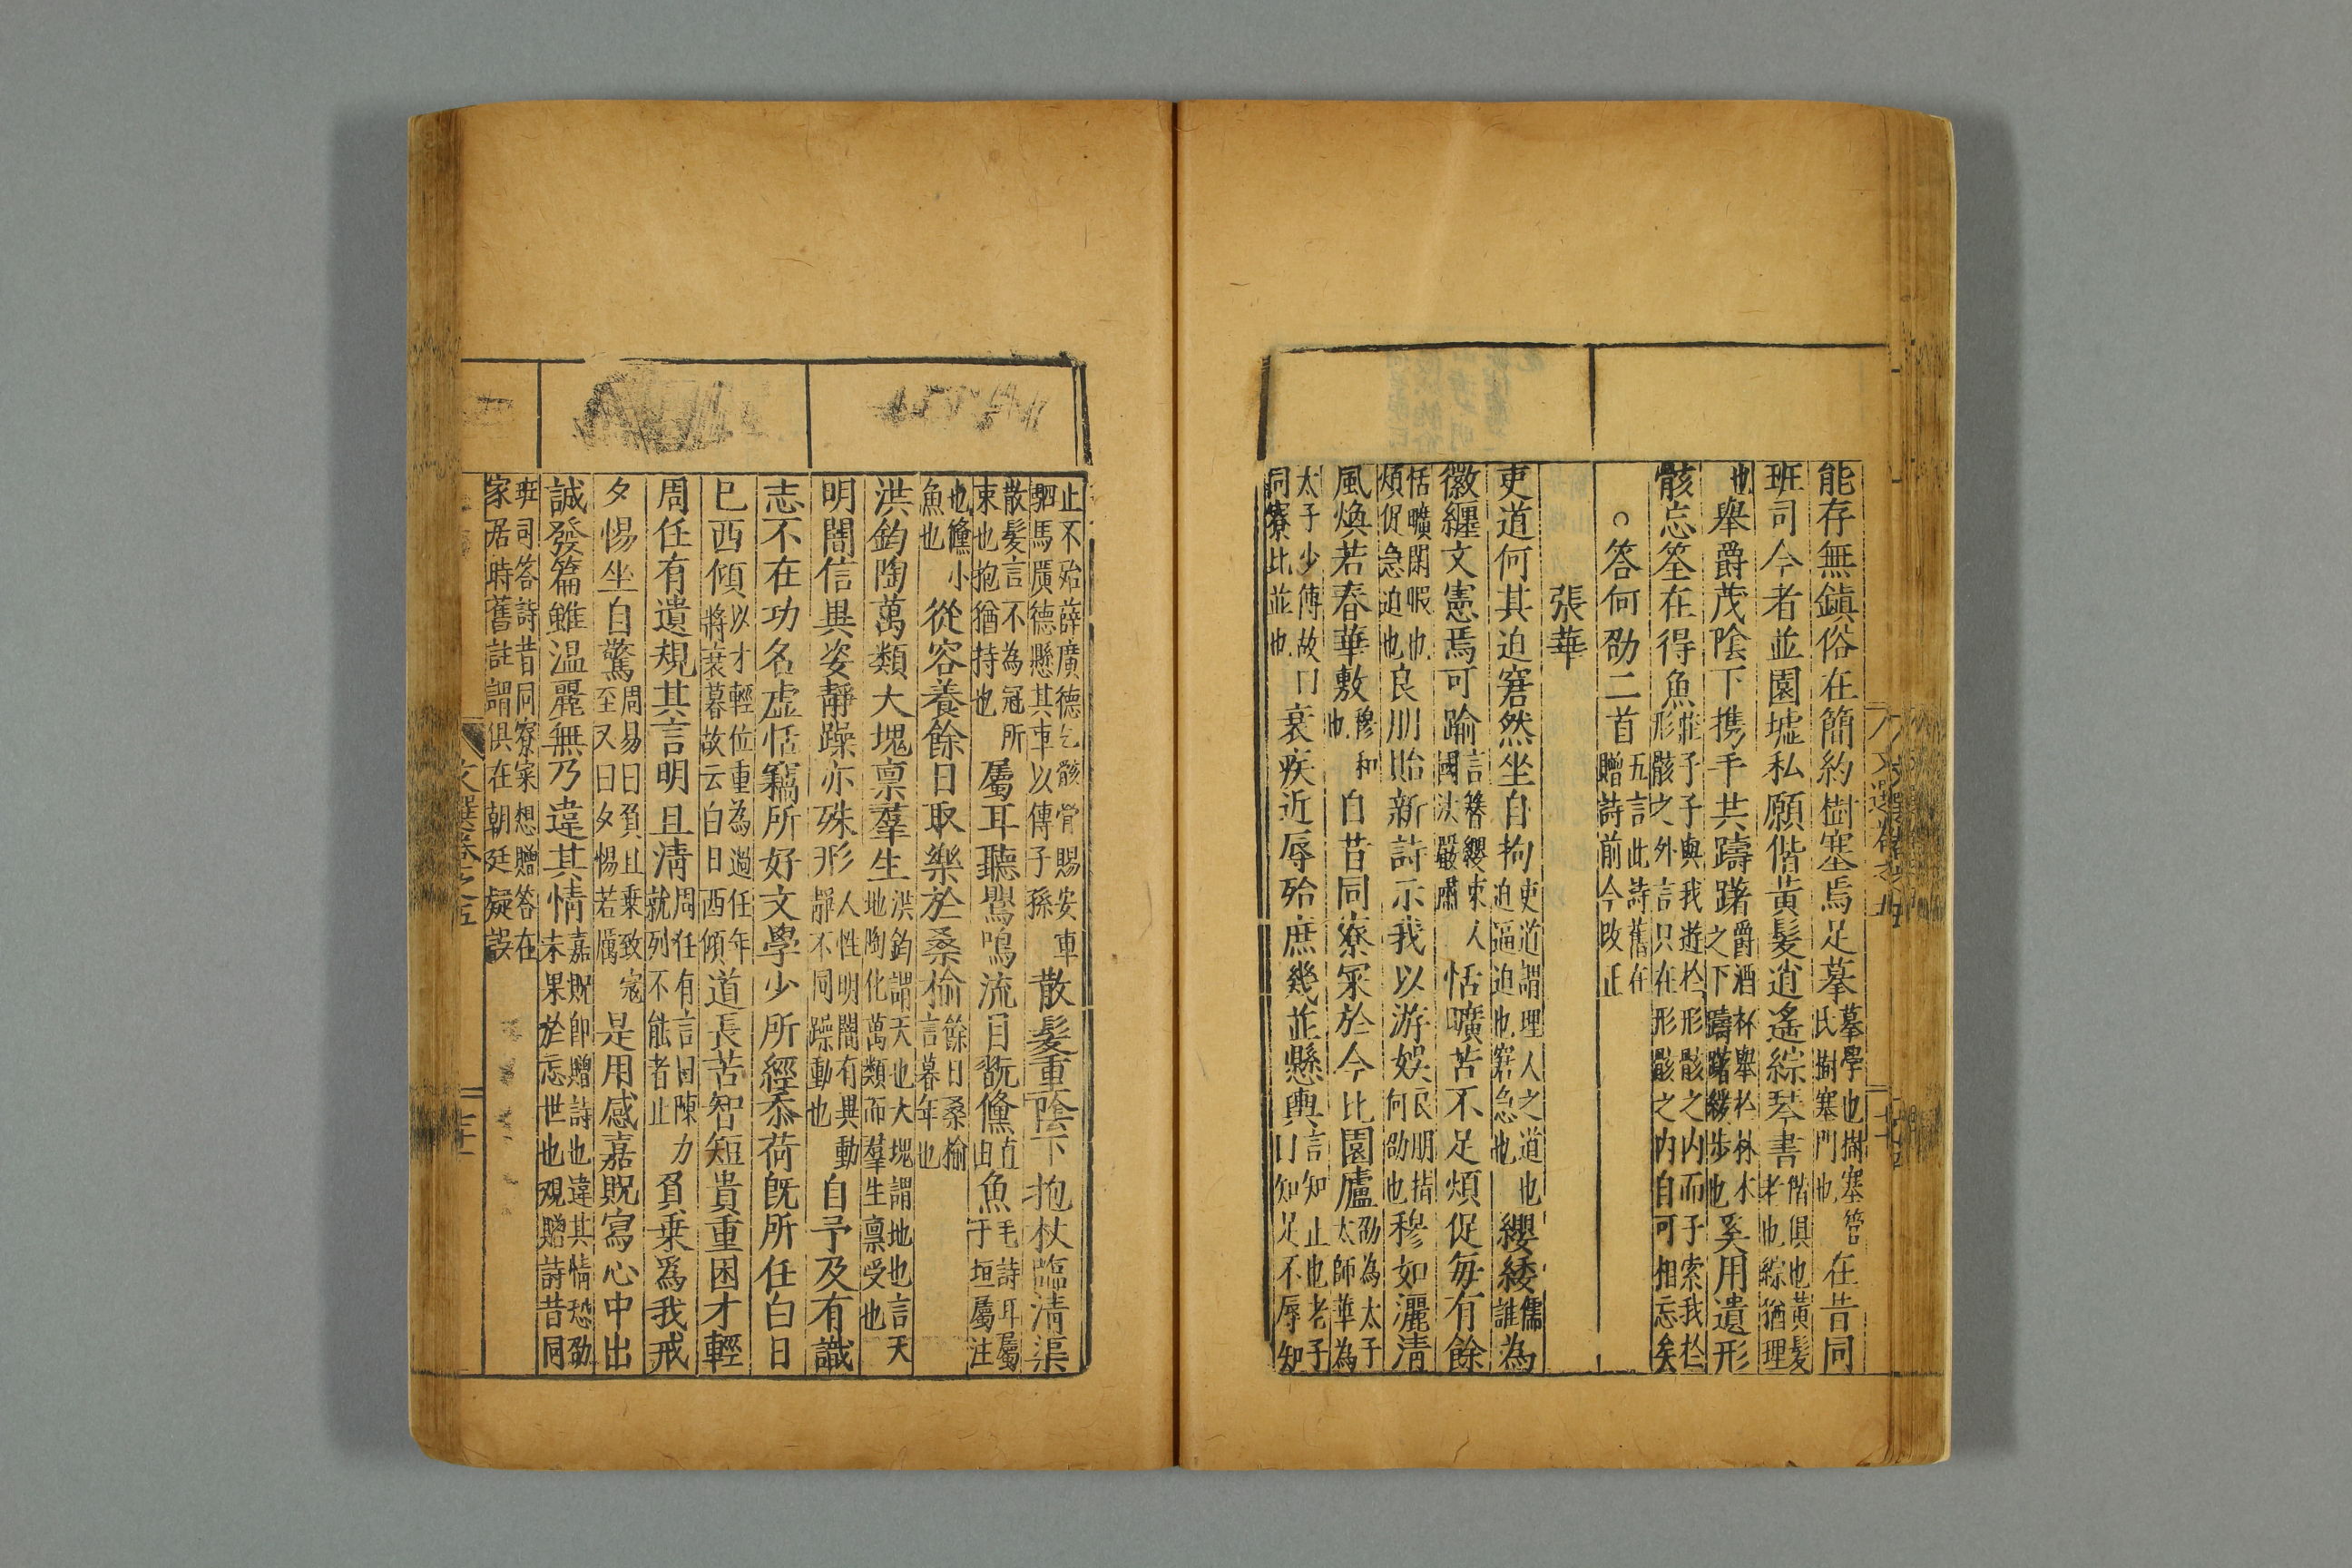 能存無鎮俗在簡約樹塞焉足摹摹學也樹塞管氏樹塞門也在昔同
班司今者並園墟私願偕黃髮逍遙綜琴書偕俱也黃髮老也綜猶理
也舉爵茂陰下攜手共躊躇爵酒杯舉於林木之下躊躇緩步也奚用遺形
骸忘筌在得魚莊子子與我遊於形骸之内而子索我於形骸之外言只在形骸之内自可相忘矣
○答何劭二首五言此詩舊在贈詩前今改正
張華
吏道何其迫窘然坐自拘吏道謂理人之道也迫逼迫也窘急也纓緌儒誰為
徽纆文憲焉可踰言簪纓束人國法嚴肅恬曠苦不足煩促每有餘
恬曠閑暇也煩促急迫也良朋貽新詩示我以游娛良朋指何劭也穆如灑清
風煥若春華敷穆和也自昔同寮寀於今比園廬劭為太子太師華為
太子少傅故曰同寮比並也衰疾近辱殆庶幾並懸輿言知止也老子曰知足不辱知
止不殆薛廣德乞骸骨賜安車駟馬廣德懸其車以傳子孫散髮重陰下抱杖臨清渠
散髮言不為冠所束也抱猶持也屬耳聽鸎鳴流目翫儵魚毛詩耳屬于垣屬注
也儵小魚也從容養餘日取樂於桑榆餘日桑榆言暮年也
洪鈞陶萬類大塊禀羣生洪鈞謂天也大塊謂地也言天地陶化萬類而羣生禀受也
明闇信異姿靜躁亦殊形人性明闇有異動靜不同躁動也自予及有識
志不在功名虛恬竊所好文學少所經忝荷既所任白日
已西傾以才輕位重為過任年將衰暮故云白日西傾道長苦智短貴重困才輕
周任有遺規其言明且清周任有言曰陳力就列不能者止負乗爲我戒
夕惕坐自驚周易曰負且乗致寇至又曰夕惕若厲是用感嘉貺寫心中出
誠發篇雖温麗無乃違其情嘉貺即贈詩也違其情恐劭未果於忘世也觀贈詩昔同
班司答詩昔同寮寀想贈答在家居時舊註謂俱在朝廷疑誤
文選卷之五